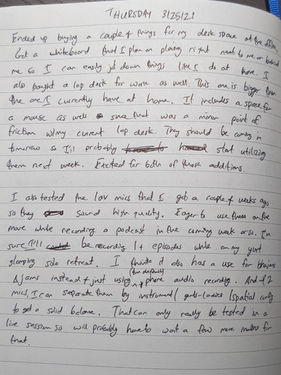 THURSDAY 3/25/21
Ended up buying a couple of things for my desk space at the office.
Got a whiteboard that I plan on placing right next to me or behind
me so I can easily jot down things like I do at home. I
also bought a lap desk for work as well. This one is bigger than
the one I currently have at home. It includes a space for
a mouse as well since that was a minor point of
friction w/my current lap desk. They should be coming in
tomorrow so I'll probably start utilizing
them next week. Excited for both of these additions.
I also tested the lav mics that I got a couple of weeks ago
so they sound high quality. Eager to use these on the
more while recording a podcast in the coming week or so. I'm
sure I'll be recording 1+ episodes while on my yurt
glamping solo retreat. I think it also has a use for
& jams instead of just using my phone audio recording. And w/ 2
mics, I can separate them by instrument / / spatial
to get a solid balance. That can only really be tested in a
live session so will probably have to wait a few more months for
that.